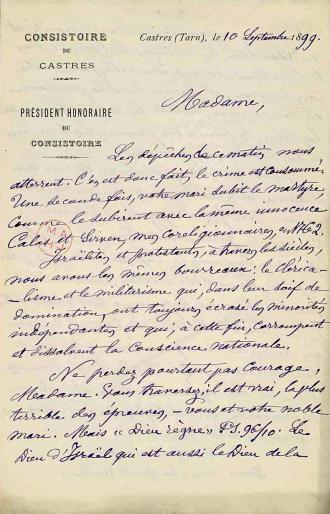 CONSISTOIRE
DE
CASTRES
Castres (Tarn), le 10 Septembre 1899.
PRÉSIDENT HONORAIRE
DU
CONSISTOIRE
Madame,
Les dépêches de ce matin nous
atterrent. C'en est donc fait, le crime est consommé.
Une seconde fois, votre mari subit le martyre
comme le subirent avec la même innocence
Calas et Sirven, mes coreligionnaires, en 1762.
Israëlites et protestants, à travers les siècles,
nous avons les mêmes bourreaux: le Clérica-
-lisme et le militarisme qui, dans leur soif de
domination, ont toujours écrasé les minorités
indépendantes et qui, à cette fin, corrompent
et dissolvent la Conscience nationale.
Ne perdez pourtant pas courage,
Madame. Vous traversez, il est vrai, la plus
terrible des épreuves, - vous et votre noble
mari. Mais « Dieu règne » Ps. 96/10. Le
Dieu d'Israël qui est aussi le Dieu de la